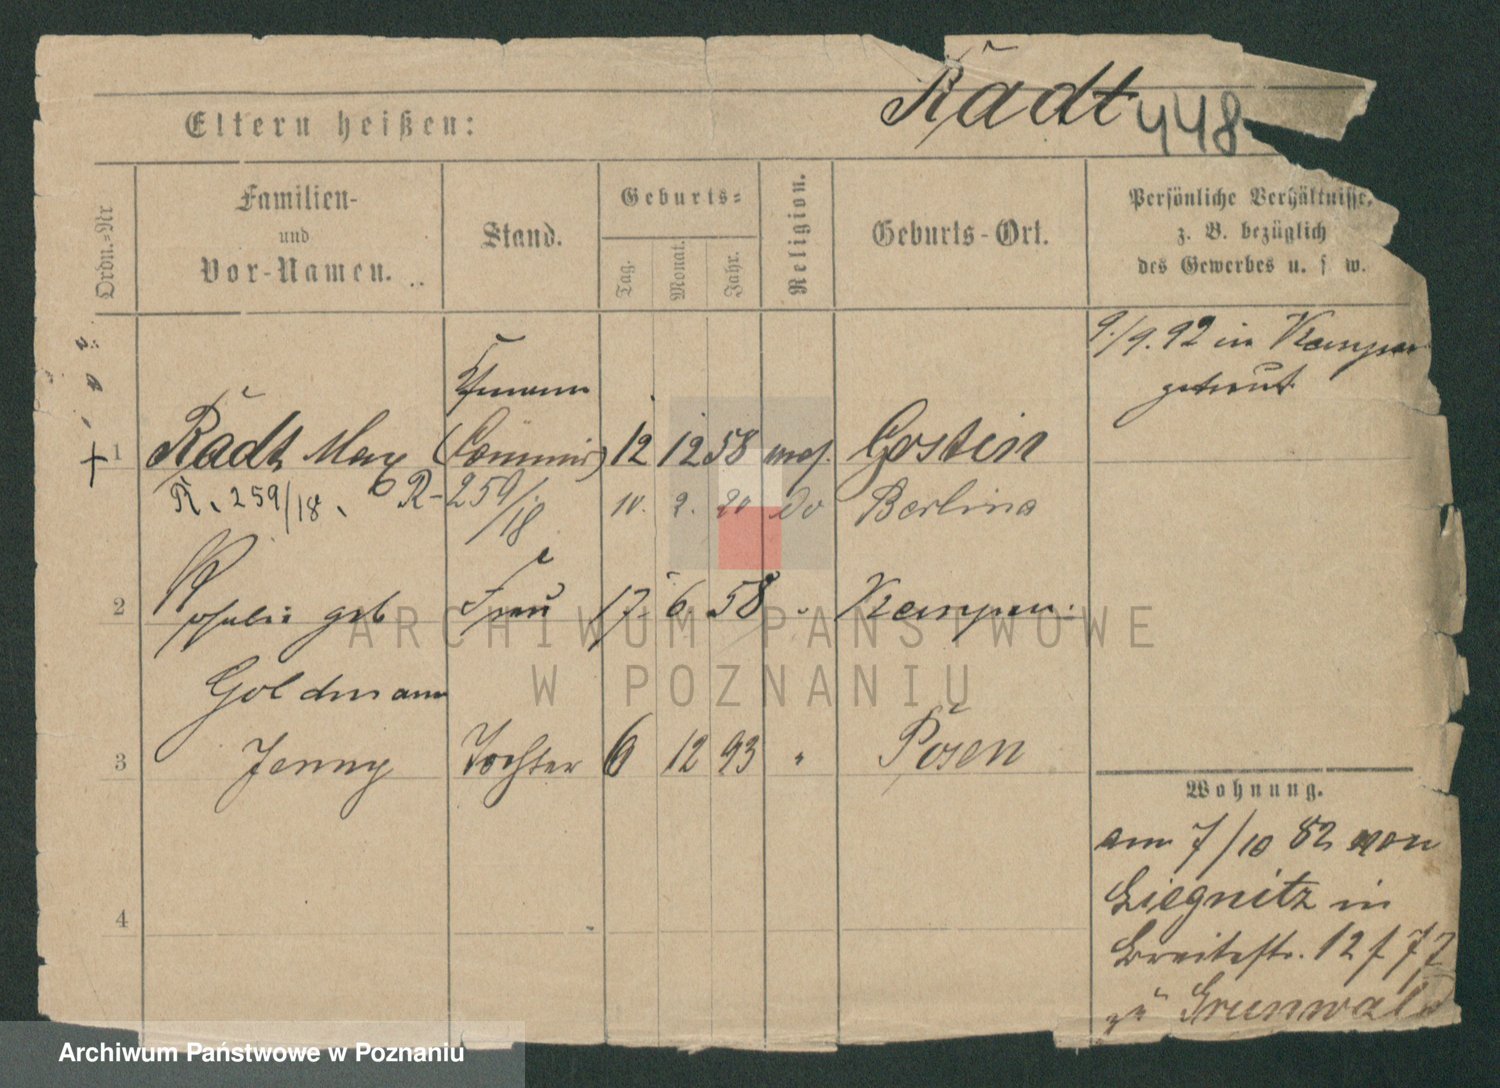 Radt 448
Eltern heißen:
Ordn.=Nr
Familien-
und
Vor-Namen.
Stand.
Geburts=
Tag.
Monat.
Jahr.
Religion.
Geburts-Ort.
Persönliche Verhältnisse,
z. B. bezüglich
des Gewerbes u. s w.
9./9. 92 in Kempen
getraut
Kfmann
1 Radt Max (Commis) 12 12 58 mos. Gostin
R. 259/18. R-259/18 10. 2. 20 do Berlin
2 Rosalie geb Frau 17 6 58 " Kempen
Goldmann
3 Jenny Tochter 6 12 93 " Posen
4
Wohnung.
am 7/10 82 von
Liegnitz in
Breitestr. 12 f 77
zu Grunwald
ARCHIWUM PAŃSTWOWE
W POZNANIU
Archiwum Państwowe w Poznaniu